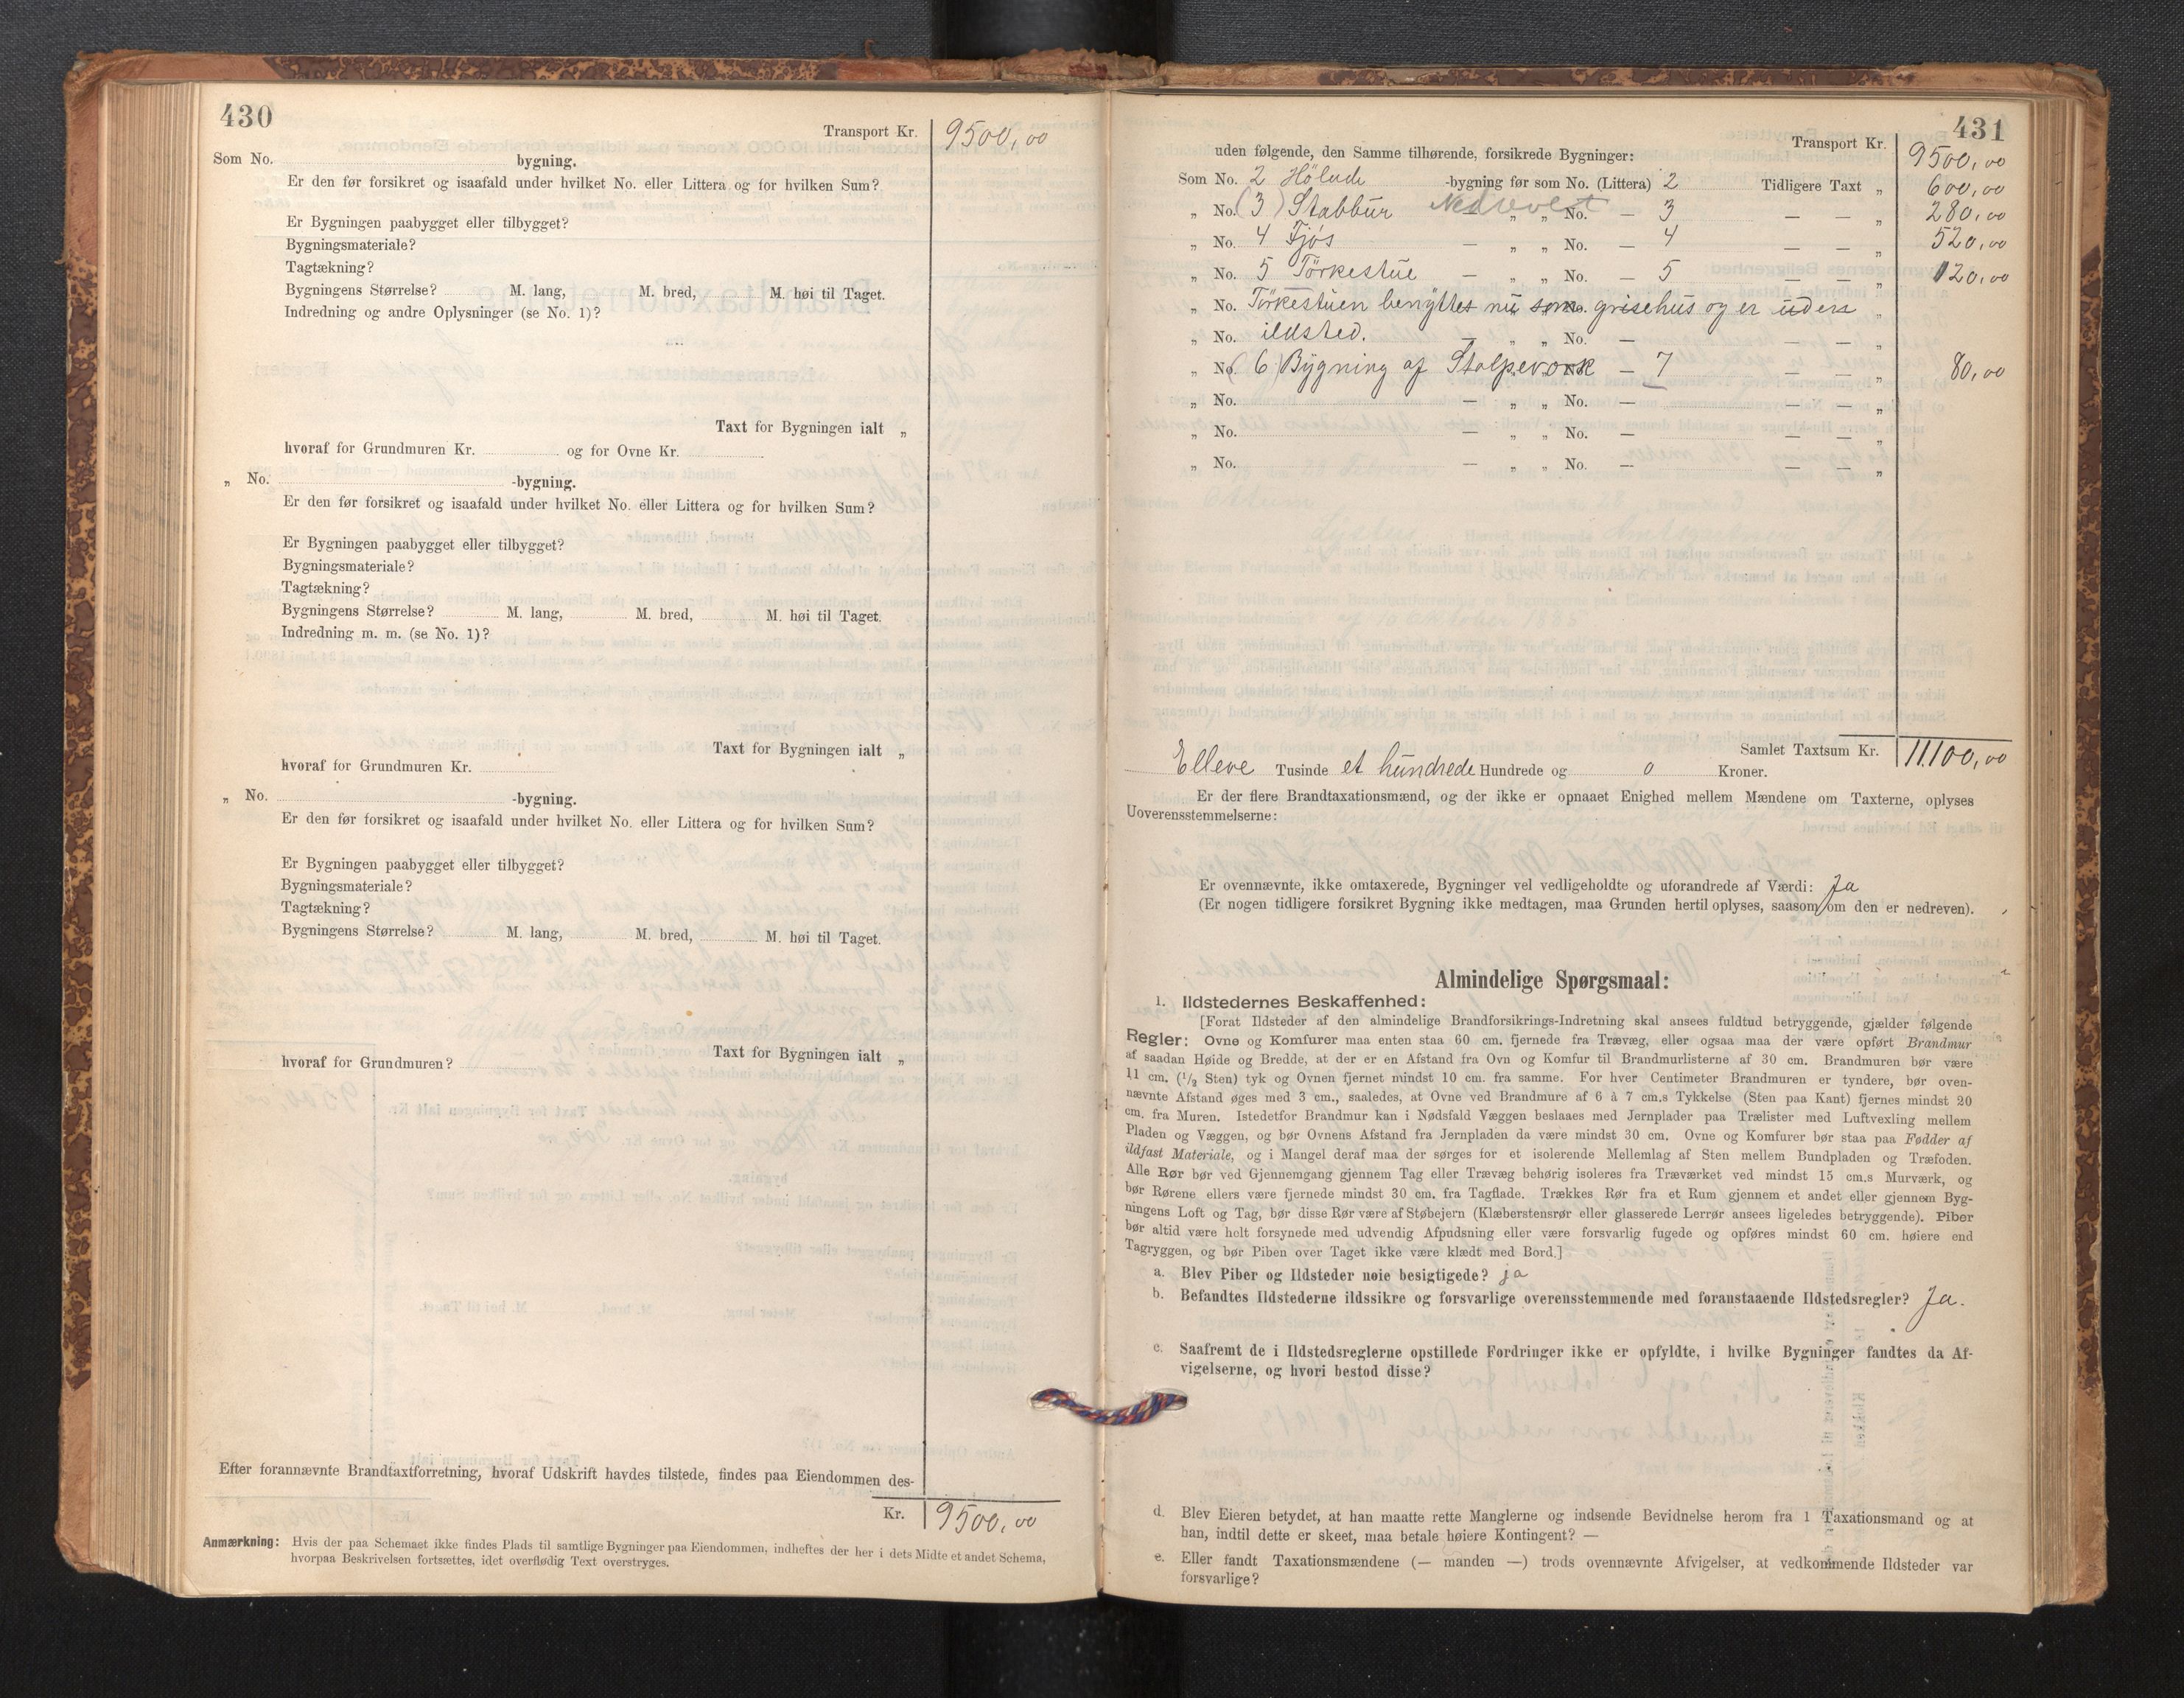 430
Transport Kr. 9500,00
Som No. bygning.
Er den før forsikret og isaafald under hvilket No. eller Littera og for hvilken Sum?
Er Bygningen paabygget eller tilbygget?
Bygningsmateriale?
Tagtækning?
Bygningens Størrelse? M. lang, M. bred, M. høi til Taget.
Indredning og andre Oplysninger (se No. 1)?
Taxt for Bygningen ialt „
hvoraf for Grundmuren Kr. og for Ovne Kr.
„ No. -bygning.
Er den før forsikret og isaafald under hvilket No. eller Littera og for hvilken Sum?
Er Bygningen paabygget eller tilbygget?
Bygningsmateriale?
Tagtækning?
Bygningens Størrelse? M. lang, M. bred, M. høi til Taget.
Indredning m. m. (se No. 1)?
Taxt for Bygningen ialt „
hvoraf for Grundmuren Kr.
„ No. -bygning.
Er den før forsikret og isaafald under hvilket No. eller Littera og for hvilken Sum?
Er Bygningen paabygget eller tilbygget?
Bygningsmateriale?
Tagtækning?
Bygningens Størrelse? M. lang, M. bred, M. høi til Taget.
Taxt for Bygningen ialt „
hvoraf for Grundmuren?
Efter forannævnte Brandtaxtforretning, hvoraf Udskrift havdes tilstede, findes paa Eiendommen des-
Kr. 9500,00
Anmærkning: Hvis der paa Schemaet ikke findes Plads til samtlige Bygninger paa Eiendommen, indheftes der her i dets Midte et andet Schema,
hvorpaa Beskrivelsen fortsættes, idet overflødig Text overstryges.
431
Transport Kr. 9500,00
uden følgende, den Samme tilhørende, forsikrede Bygninger:
Som No. 2 Hölade -bygning før som No. (Littera) 2 Tidligere Taxt „ 600,00
„ No. (3) Stabbur Nedrevet — „ „ No. — 3 — — „ 280,00
„ No. 4 Fjös — „ „ No. — 4 — — „ 520,00
„ No. 5 Törkestue — „ „ No. — 5 — — „ 120,00
„ No. Törkestuen benyttes nu som grisehus og er uden „
„ No. ildsted. — „ „ No. — — — „
„ No. (6) Bygning af Stolpeverk — 7 — — „ 80,00
„ No. — „ „ No. — — — „
„ No. — „ „ No. — — — „
„ No. — „ „ No. — — — „
Samlet Taxtsum Kr. 11100,00
Elleve Tusinde et hundrede Hundrede og 0 Kroner.
Er der flere Brandtaxationsmænd, og der ikke er opnaaet Enighed mellem Mændene om Taxterne, oplyses
Uoverensstemmelserne:
Er ovennævnte, ikke omtaxerede, Bygninger vel vedligeholdte og uforandrede af Værdi: Ja
(Er nogen tidligere forsikret Bygning ikke medtagen, maa Grunden hertil oplyses, saasom om den er nedreven).
Almindelige Spørgsmaal:
1. Ildstedernes Beskaffenhed:
[Forat Ildsteder af den almindelige Brandforsikrings-Indretning skal ansees fuldtud betryggende, gjælder følgende
Regler: Ovne og Komfurer maa enten staa 60 cm. fjernede fra Trævæg, eller ogsaa maa der være opført Brandmur
af saadan Høide og Bredde, at der er en Afstand fra Ovn og Komfur til Brandmurlisterne af 30 cm. Brandmuren bør være
11 cm. (1/2 Sten) tyk og Ovnen fjernet mindst 10 cm. fra samme. For hver Centimeter Brandmuren er tyndere, bør oven-
nævnte Afstand øges med 3 cm., saaledes, at Ovne ved Brandmure af 6 à 7 cm.s Tykkelse (Sten paa Kant) fjernes mindst 20
cm. fra Muren. Istedetfor Brandmur kan i Nødsfald Væggen beslaaes med Jernplader paa Trælister med Luftvexling mellem
Pladen og Væggen, og bør Ovnens Afstand fra Jernpladen da være mindst 30 cm. Ovne og Komfurer bør staa paa Fødder af
ildfast Materiale, og i Mangel deraf maa der sørges for et isolerende Mellemlag af Sten mellem Bundpladen og Træfoden.
Alle Rør bør ved Gjennemgang gjennem Tag eller Trævæg behørig isoleres fra Træværket ved mindst 15 cm.s Murværk, og
bør Rørene ellers være fjernede mindst 30 cm. fra Tagflade. Trækkes Rør fra et Rum gjennem et andet eller gjennem Byg-
ningens Loft og Tag, bør disse Rør være af Støbejern (Klæberstensrør eller glasserede Lerrør ansees ligeledes betryggende). Piber
bør altid være helt forsynede med udvendig Afpudsning eller være forsvarlig fugede og opføres mindst 60 cm. høiere end
Tagryggen, og bør Piben over Taget ikke være klædt med Bord.]
a. Blev Piber og Ildsteder nøie besigtigede? ja
b. Befandtes Ildstederne ildssikre og forsvarlige overensstemmende med foranstaaende Ildstedsregler? Ja.
c. Saafremt de i Ildstedsreglerne opstillede Fordringer ikke er opfyldte, i hvilke Bygninger fandtes da Af-
vigelserne, og hvori bestod disse?
d. Blev Eieren betydet, at han maatte rette Manglerne og indsende Bevidnelse herom fra 1 Taxationsmand og at
han, indtil dette er skeet, maa betale høiere Kontingent? —
e. Eller fandt Taxationsmændene (— manden —) trods ovennævnte Afvigelser, at vedkommende Ildsteder var
forsvarlige?